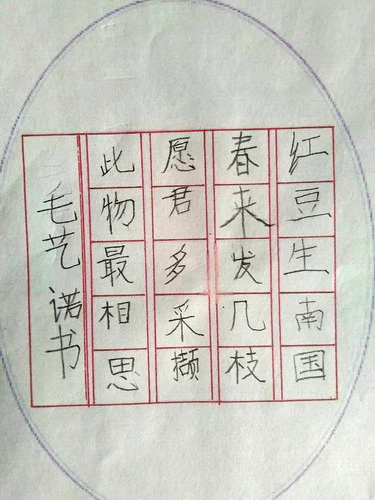 红豆生南国
春来发几枝
愿君多采撷
此物最相思
毛艺诺书